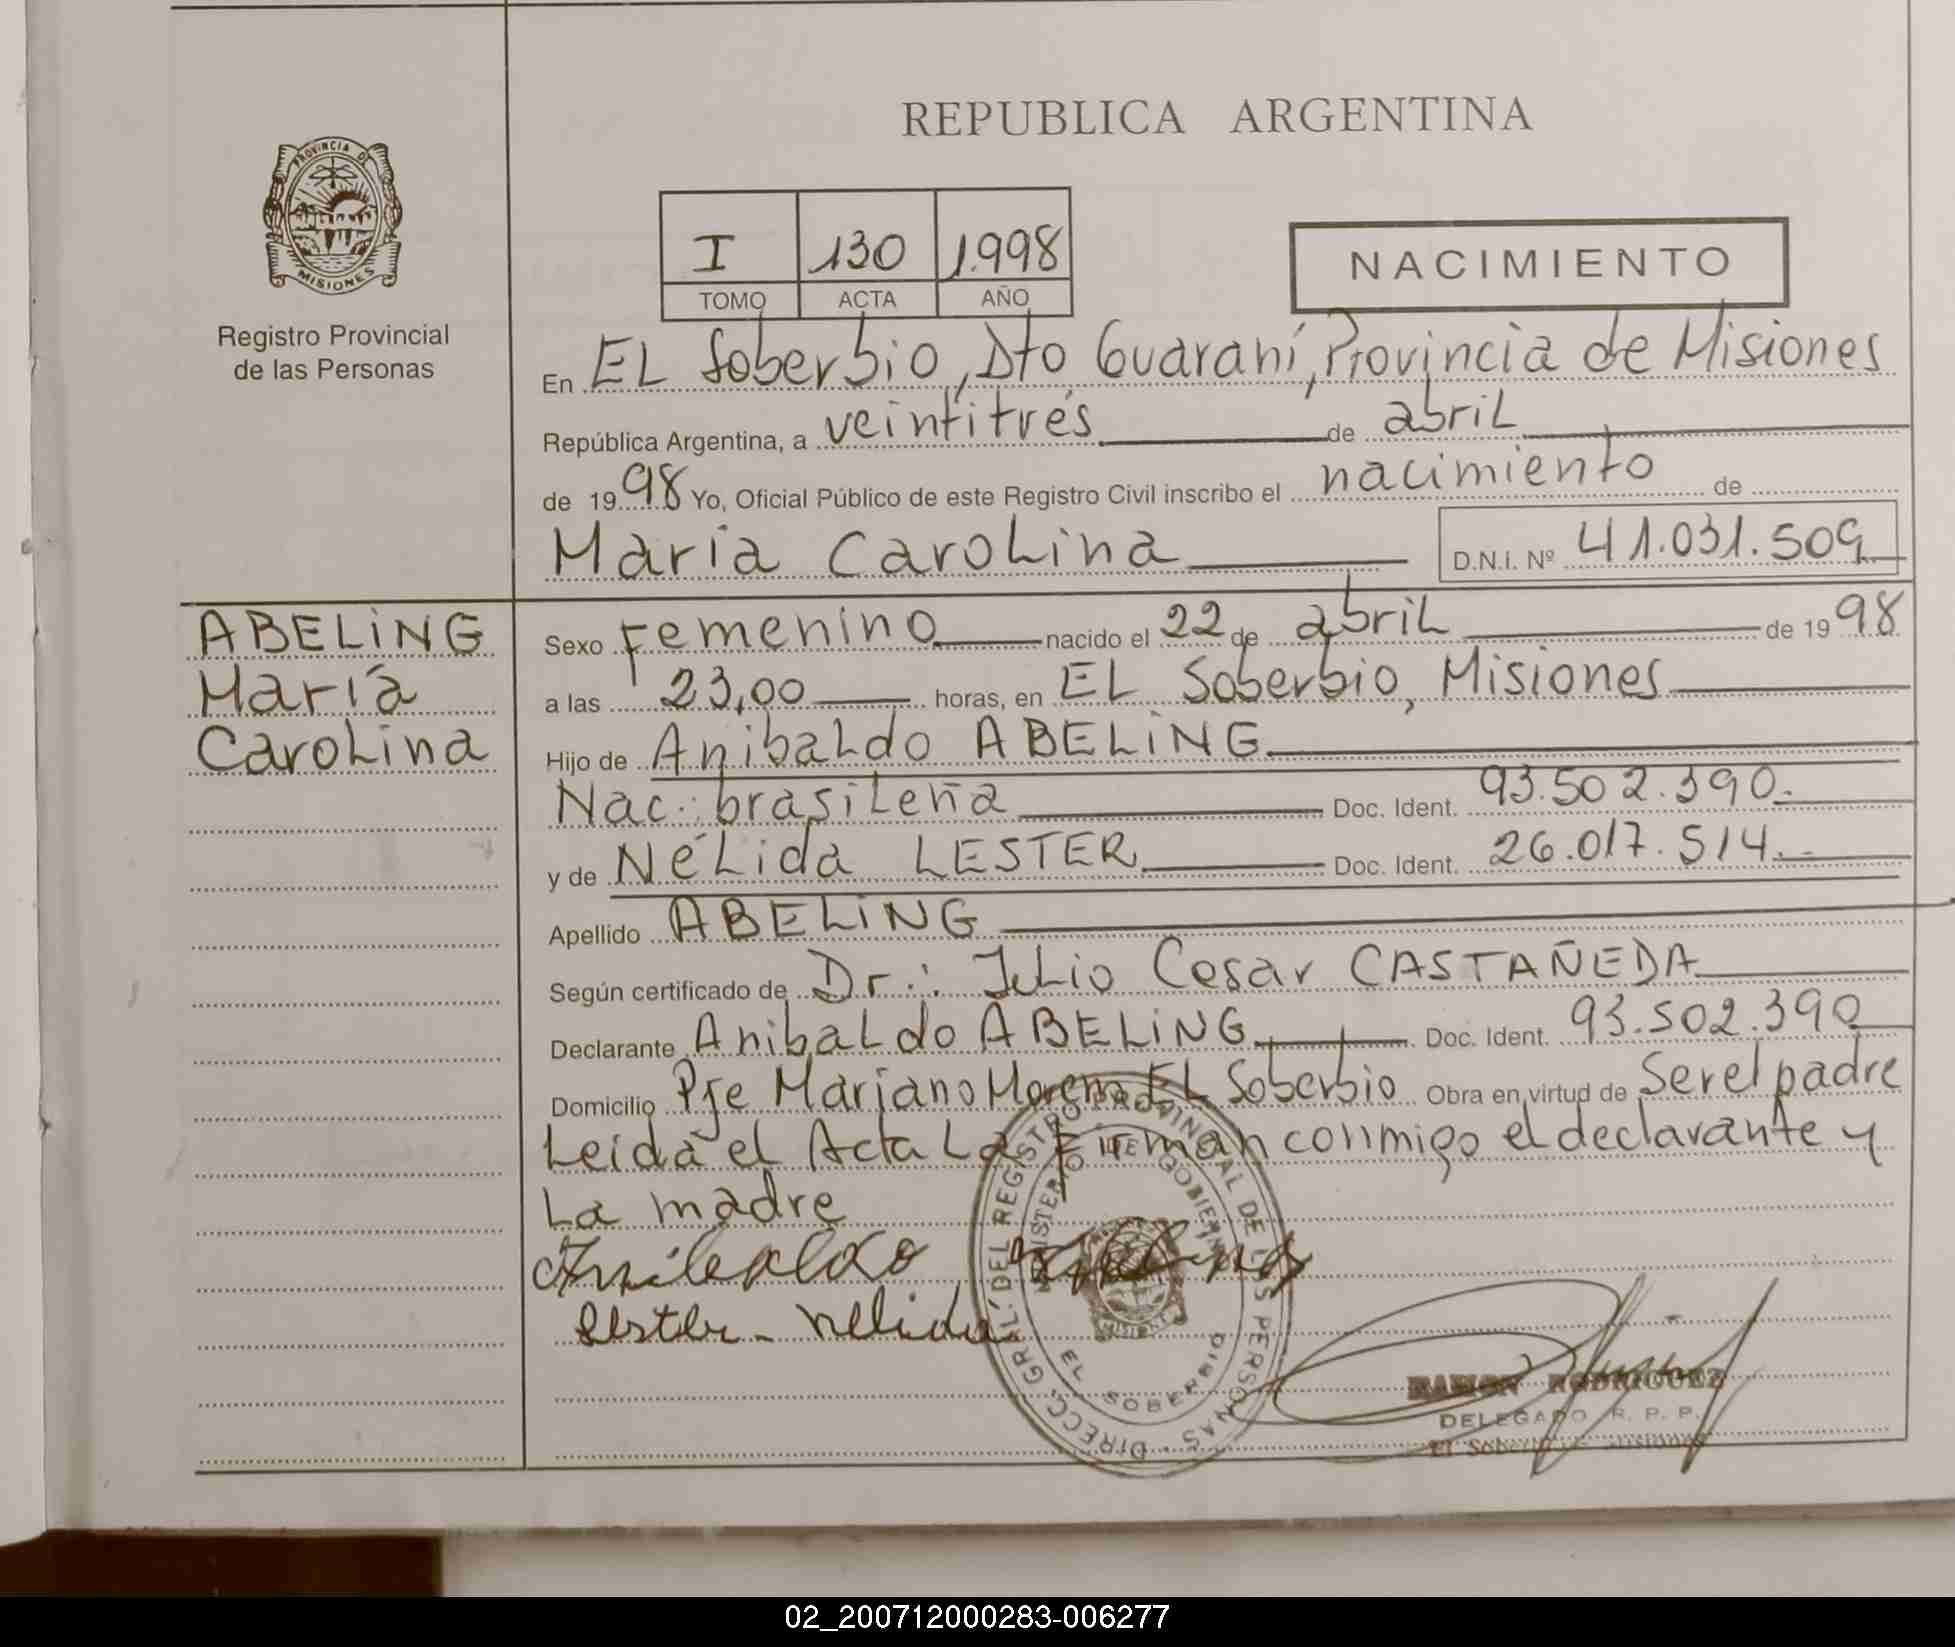 REPUBLICA ARGENTINA
PROVINCIA DE
MISIONES
Registro Provincial
de las Personas
I 130 1.998
TOMO ACTA AÑO
NACIMIENTO
En EL Soberbio, Dto Guaraní, Provincia de Misiones
República Argentina, a veintitrés de abril
de 1998 Yo, Oficial Público de este Registro Civil inscribo el nacimiento de
María Carolina D.N.I. Nº 41.031.509
ABELING
María
Carolina
Sexo Femenino nacido el 22 de abril de 1998
a las 23,00 horas, en EL Soberbio, Misiones
Hijo de Anibaldo ABELING
Nac: brasileña Doc. Ident. 93.502.390.
y de Nélida LESTER Doc. Ident. 26.017.514.
Apellido ABELING
Según certificado de Dr.: Julio Cesar CASTAÑEDA
Declarante Anibaldo ABELING Doc. Ident. 93.502.390
Domicilio Pje Mariano Moreno EL Soberbio Obra en virtud de Ser el padre
Leida el Acta La Firman conmigo el declarante y
La madre
Anibaldo
Lester - Nelida
DIRECC. GRAL. DEL REGISTRO PROVINCIAL DE LAS PERSONAS
MINISTERIO DE GOBIERNO
MISIONES
EL SOBERBIO
RAMON RODRIGUEZ
DELEGADO R. P. P.
El Soberbio - Misiones
02_200712000283-006277